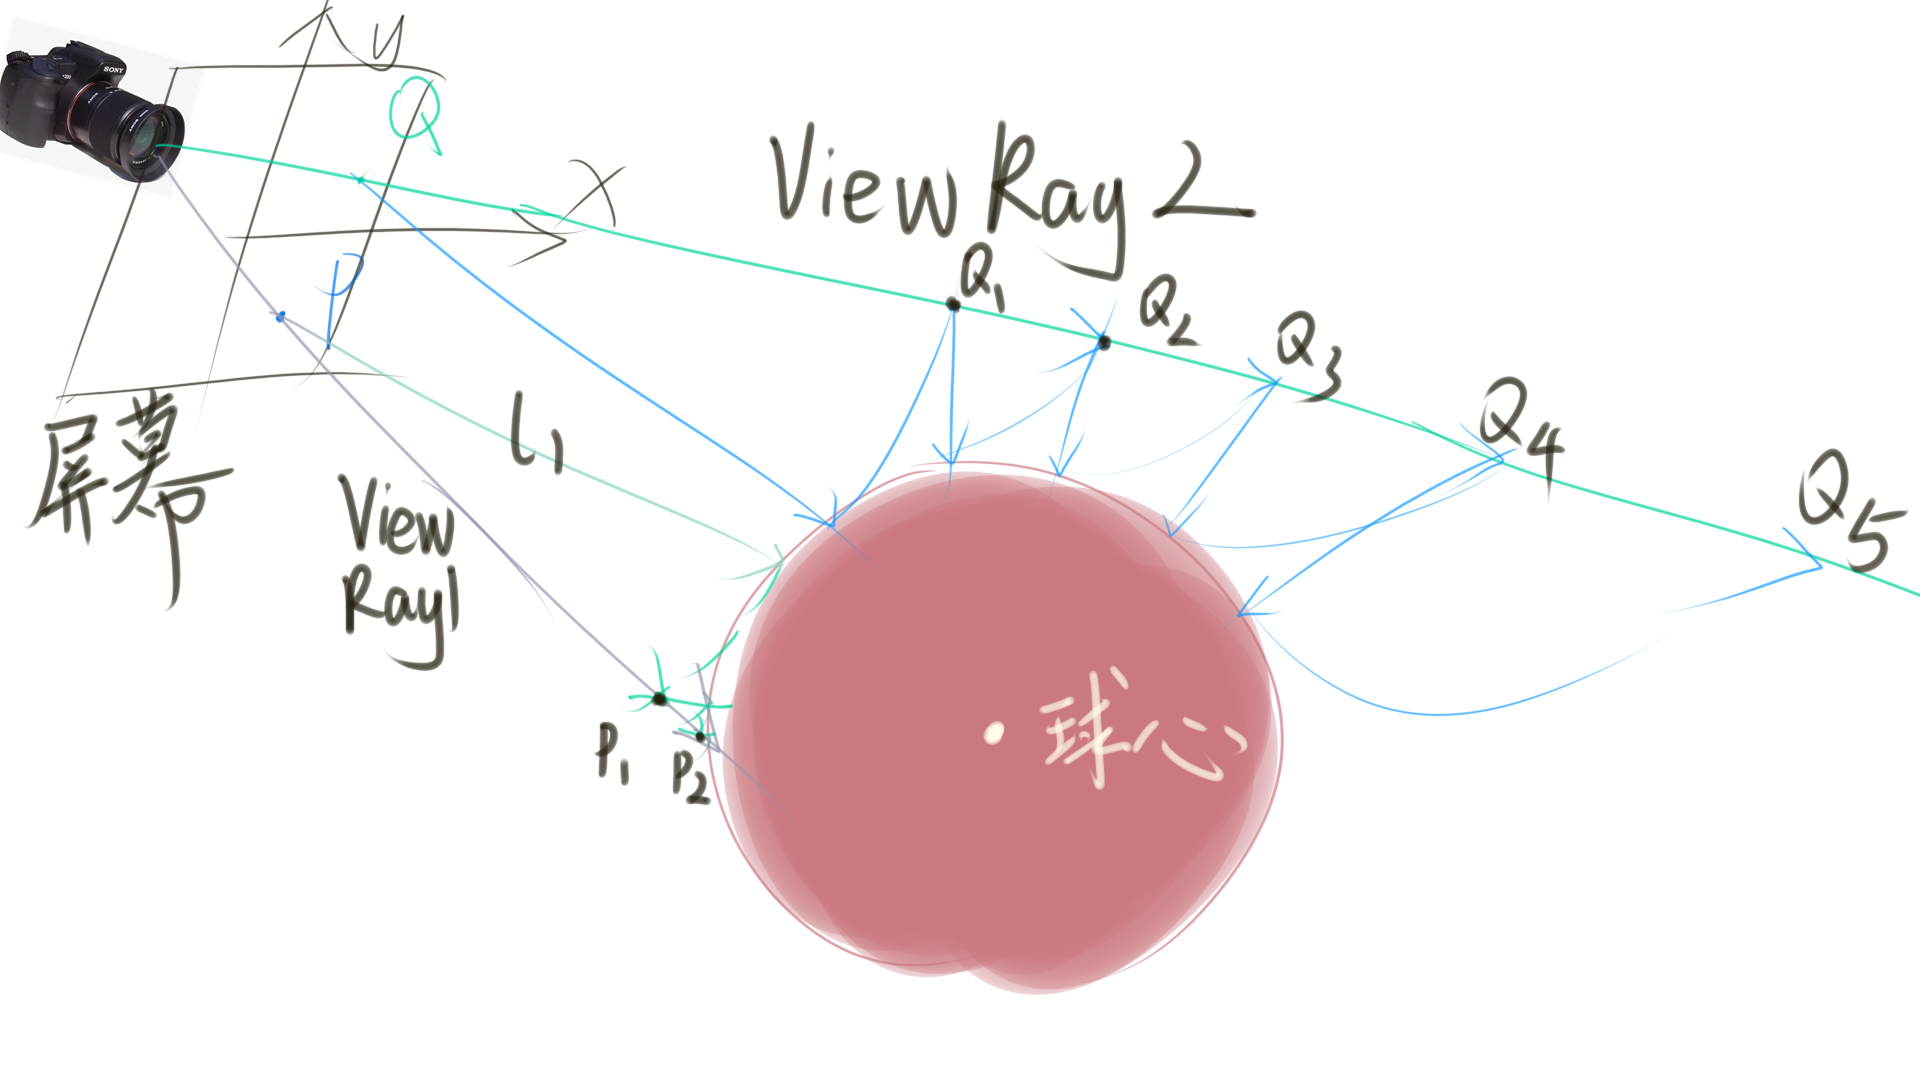 SONY
y
Q
x
View Ray 2
P
Q1
Q2
Q3
Q4
Q5
屏幕
l1
View
Ray1
P1
P2
球心